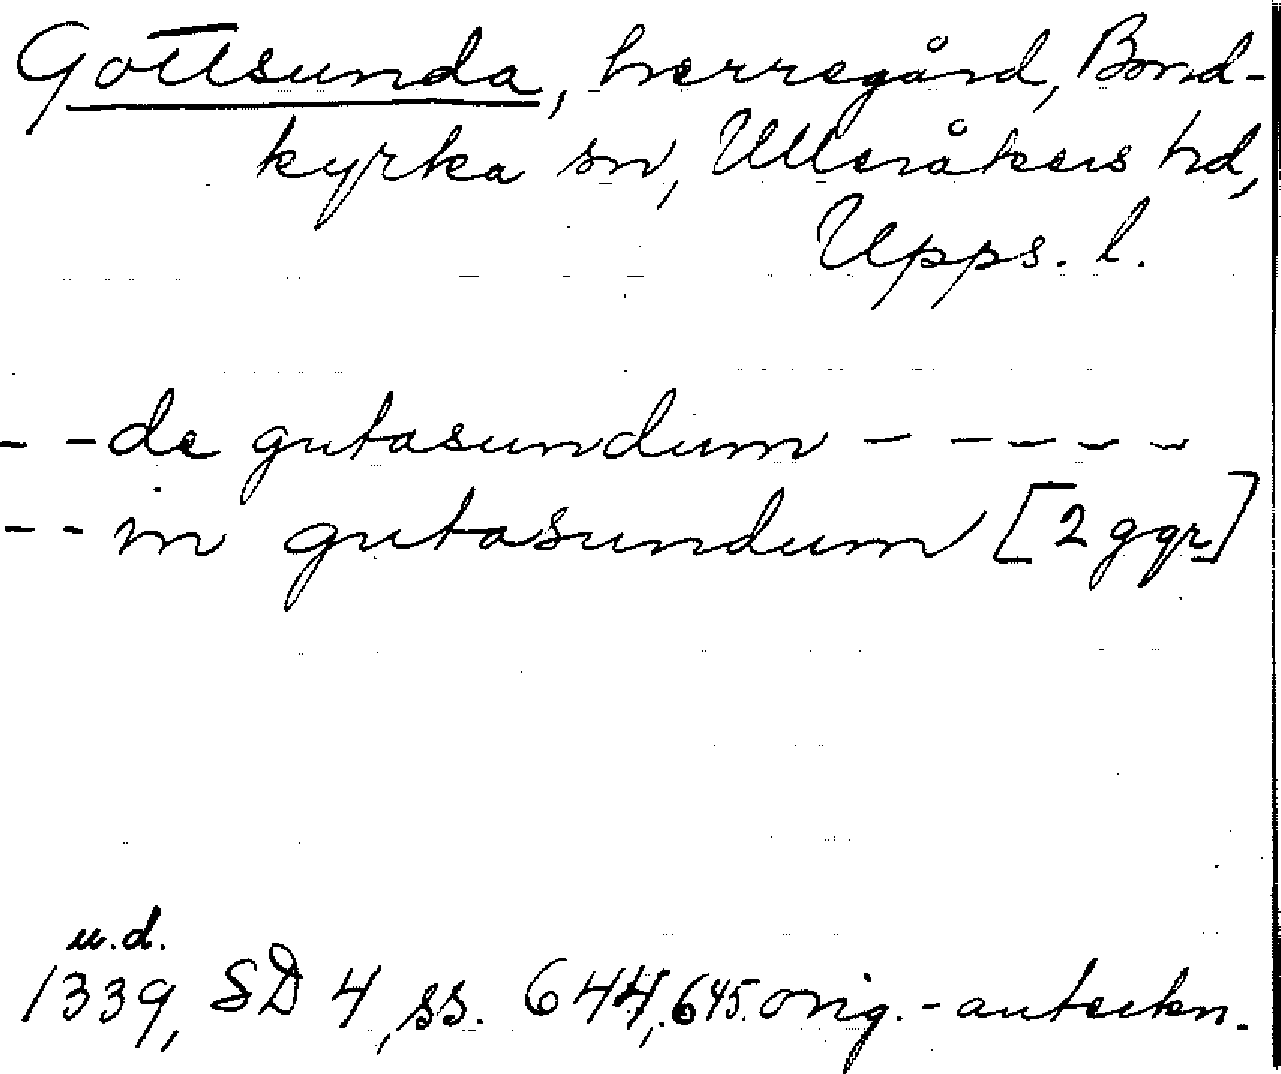 Gottsunda, herregård, Bond-
kyrka sn, Ulleråkers hd,
Upps. l.
- - de gutasundum - - - - -
- - in gutasundum [2 ggr]
u.d.
1339, SD 4, ss. 644, 645. orig.-anteckn.